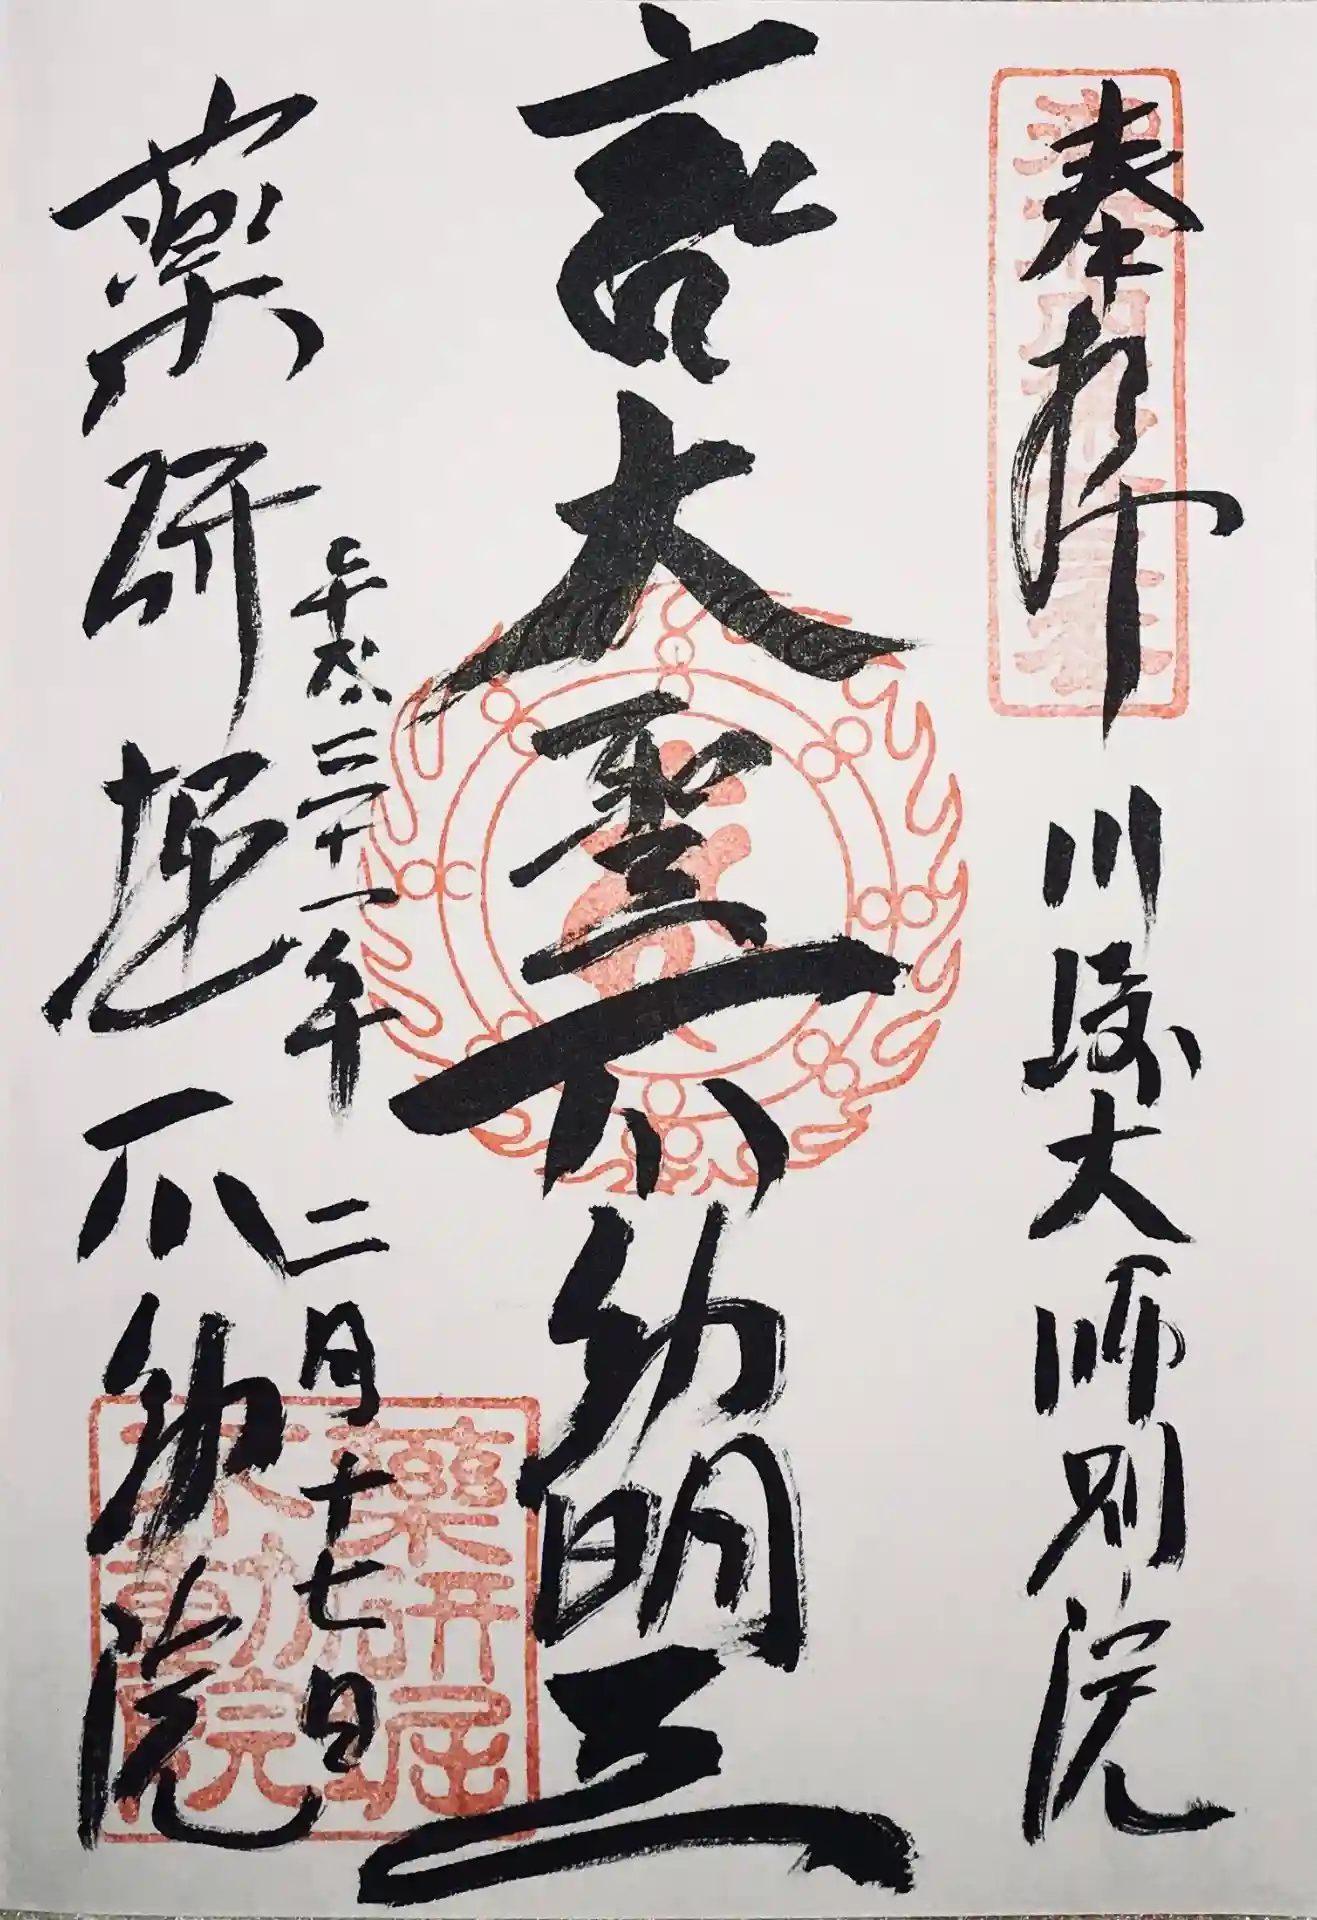 奉拝 川崎大師別院
大聖不動明王
平成三十一年二月十七日
薬研堀不動院
藥研堀
不動院